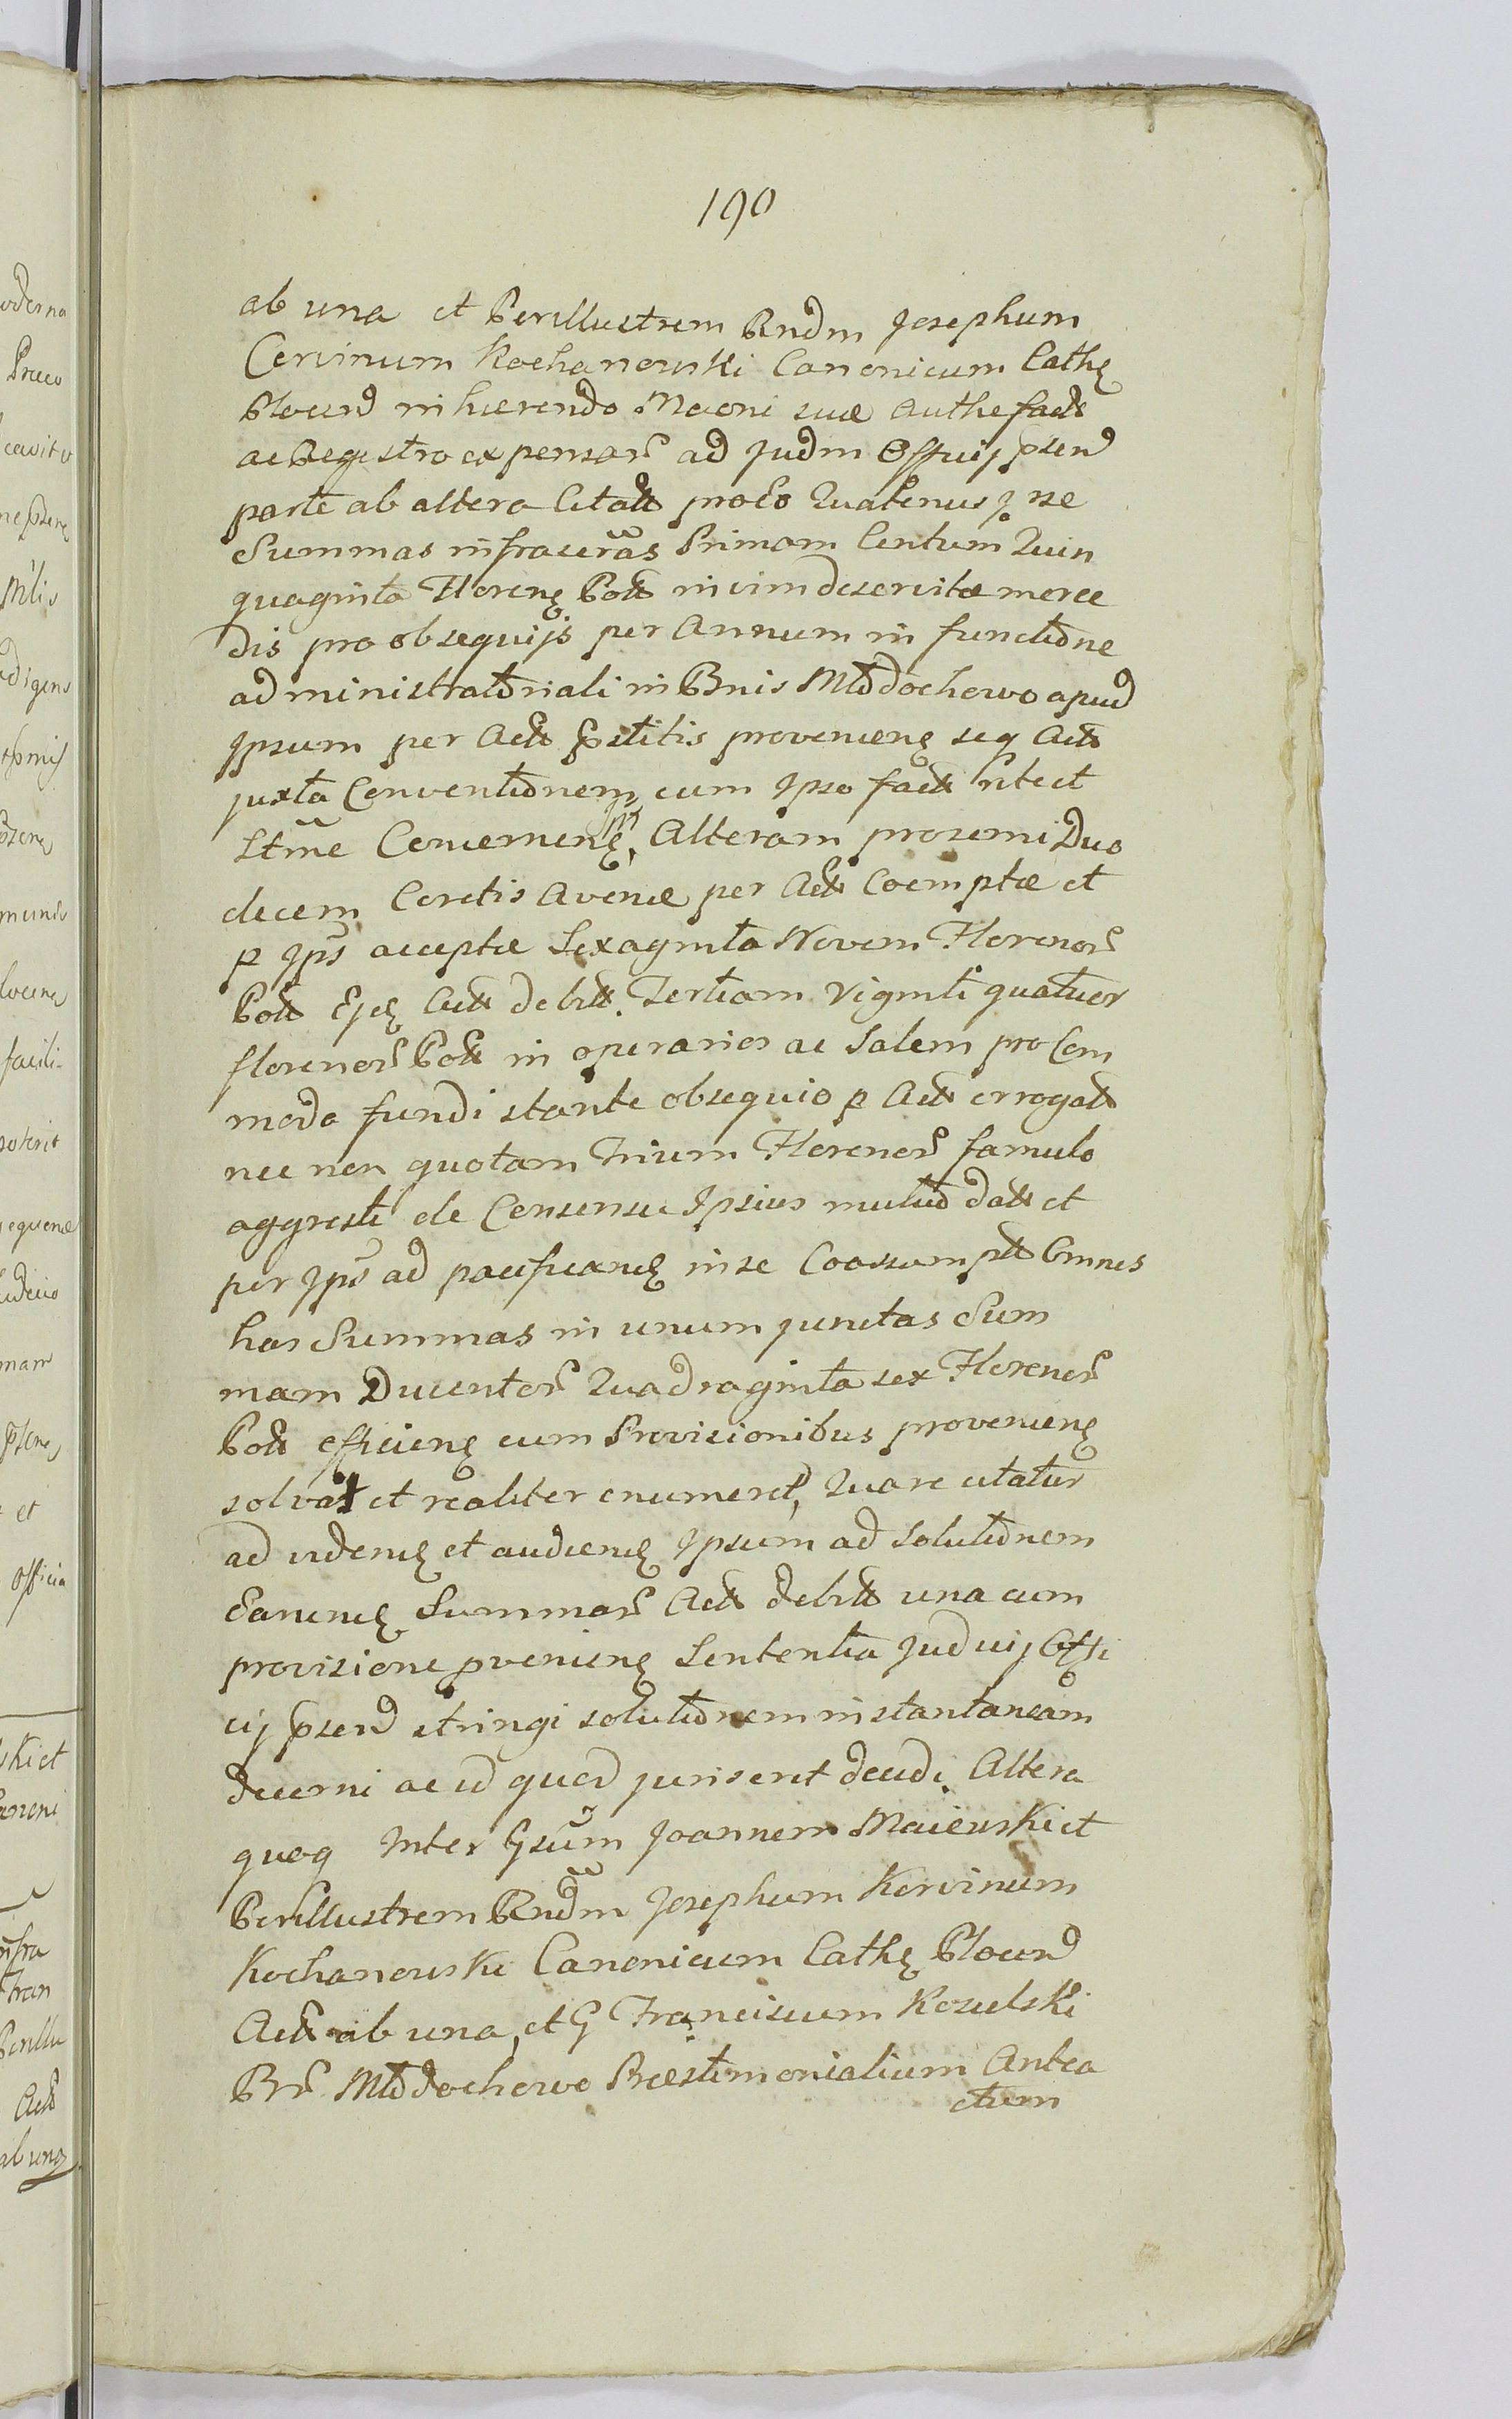 190
ab una et Perillustrem Rndm Josephum
Cervinum Kochanowski Canonicum Cathę
Plocen̄ inhaerendo Maoni suae Authe factt
ac Regestro expensar̄ ad Judm Officij psen̄
parte ab altera Citatt proeo Quatenus is se
Summas infrascrãs Primam Centum Quin
quaginta Florenę Poll in vim deservitae merce
dis pro obsequijs per Annum in functione
administratoriali in Bnis Młodochowo apud
Ipsum per Actt pstitis provenienę seq Actt
juxta Conventionem cum Ipso factt ntect
Stm̃e Concernenę, Alteram prosemi Duo
decem Coretis Avenae per Actt Coemptae et
p Ips̄ acceptae Sexaginta Novem Florenor̄
Poll Ejdę Actt debitt. Tertiam Viginti quatuor
florenor̄ Poll in operarios ac Salem pro Com
modo fundi stante obsequio p Actt errogatt
nec non quotam Trium Florenor̄ famulo
aggresti de Consensu Ipsius mutuo datt et
per Ips̄ ad pacificanę in se Coassumptt Omnes
has Summas in unum junctas Sum
mam Ducentor̄ Quadraginta sex Florenor̄
Poll efficienę cum Provisionibus provenienę
solvat et realiter enumeret, Quare citatur
ad videnę et audienę Ipsum ad Solutionem
Earunę Summar̄ Actt debitt una cum
provisione pvenienę Sententia Judicij Offi
cij psen̄ stringi solutionem instantaneam
decerni ac id quod juris erit decidi. Altera
quoq Inter Gsũm Joannem Maiewski et
Perillustrem Rndm̃ Josephum Korvinum
Kochanowski Canonicum Cathę Plocen̄
Actt ab una, et G Franciscum Kozulski
Br̄ Młodochowo Praestimonialium Antea
ctum